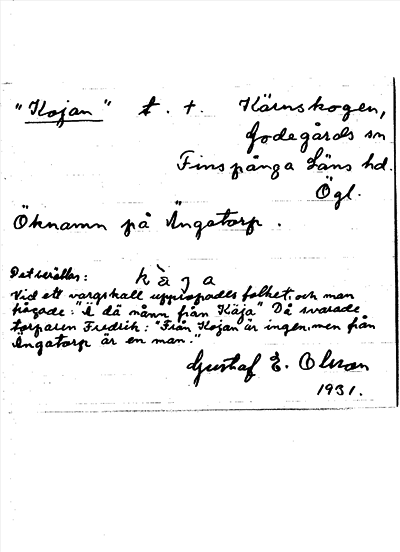 "Kojan" t. t. Kärnskogen,
Godegårds sn
Finspånga Läns hd.
Ögl.
Öknamn på Ängatorp.
Det berättas: kàja
Vid ett vargskall uppropades folket, och man
frågade: "Ä dä månn från Käja" Då svarade
torparen Fredrik: "Från Kojan är ingen, men från
Ängatorp är en man."
Gustaf E. Olsson
1931.